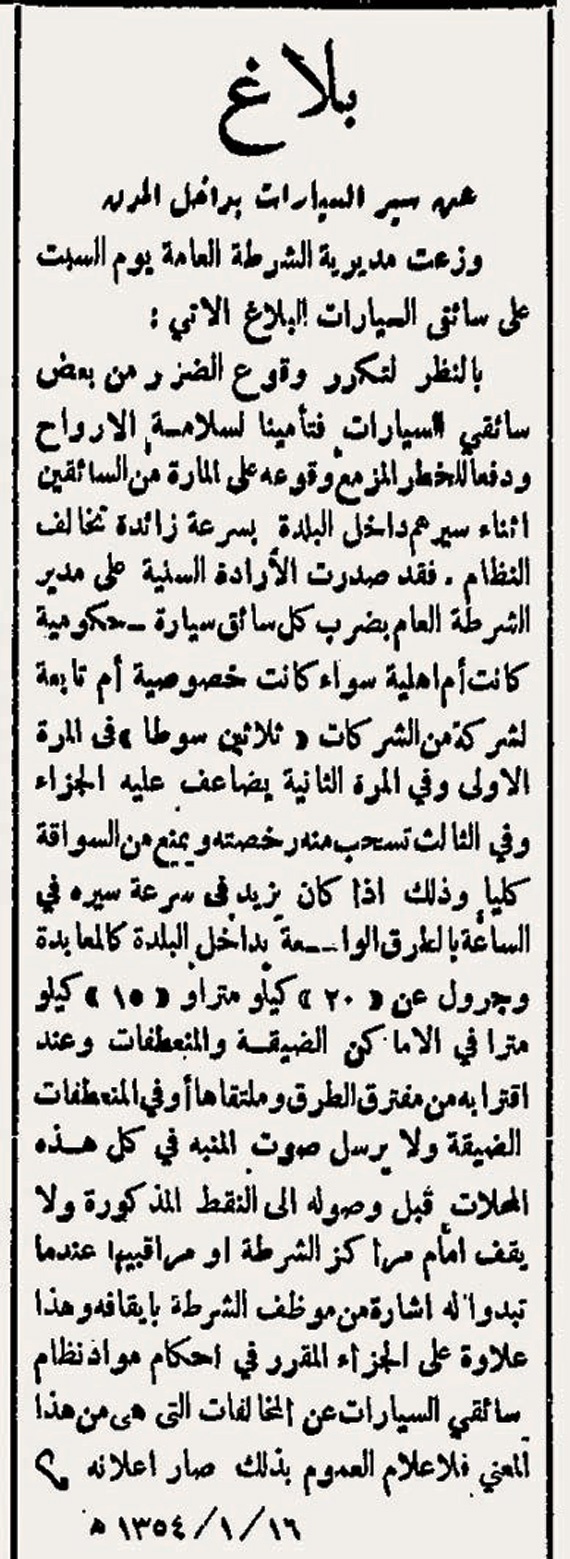 بلاغ
عن سير السيارات بداخل المدن
وزعت مديرية الشرطة العامة يوم السبت
على سائقى السيارات البلاغ الاتي :
بالنظر لتكرر وقوع الضرر من بعض
سائقي السيارات فتأمينا لسلامة الارواح
ودفعاً للخطر المزمع وقوعه على المارة من السائقين
اثناء سيرهم داخل البلدة بسرعة زائدة تخالف
النظام . فقد صدرت الأرادة السنية على مدير
الشرطة العام بضرب كل سائق سيارة حكومية
كانت أم اهلية سواء كانت خصوصية أم تابعة
لشركة من الشركات « ثلاثين سوطا » فى المرة
الاولى وفي المرة الثانية يضاعف عليه الجزاء
وفي الثالث تسحب منه رخصته ويمنع من السواقة
كليا وذلك اذا كان يزيد فى سرعة سيره في
الساعة بالطرق الواسعة بداخل البلدة كالمعابدة
وجرول عن « ٢٠ » كيلو مترا و « ١٥ » كيلو
مترا في الاماكن الضيقة والمنعطفات وعند
اقترابه من مفترق الطرق وملتقاها أو في المنعطفات
الضيقة ولا يرسل صوت المنبه في كل هذه
المحلات قبل وصوله الى النقط المذكورة ولا
يقف امام مراكز الشرطة او مراقبيها عندما
تبدوا له اشارة من موظف الشرطة بايقافه وهذا
علاوة على الجزاء المقرر في احكام مواد نظام
سائقي السيارات عن المخالفات التى هى من هذا
المعني فلاعلام العموم بذلك صار اعلانه
١٦ / ١ / ١٣٥٤ هـ